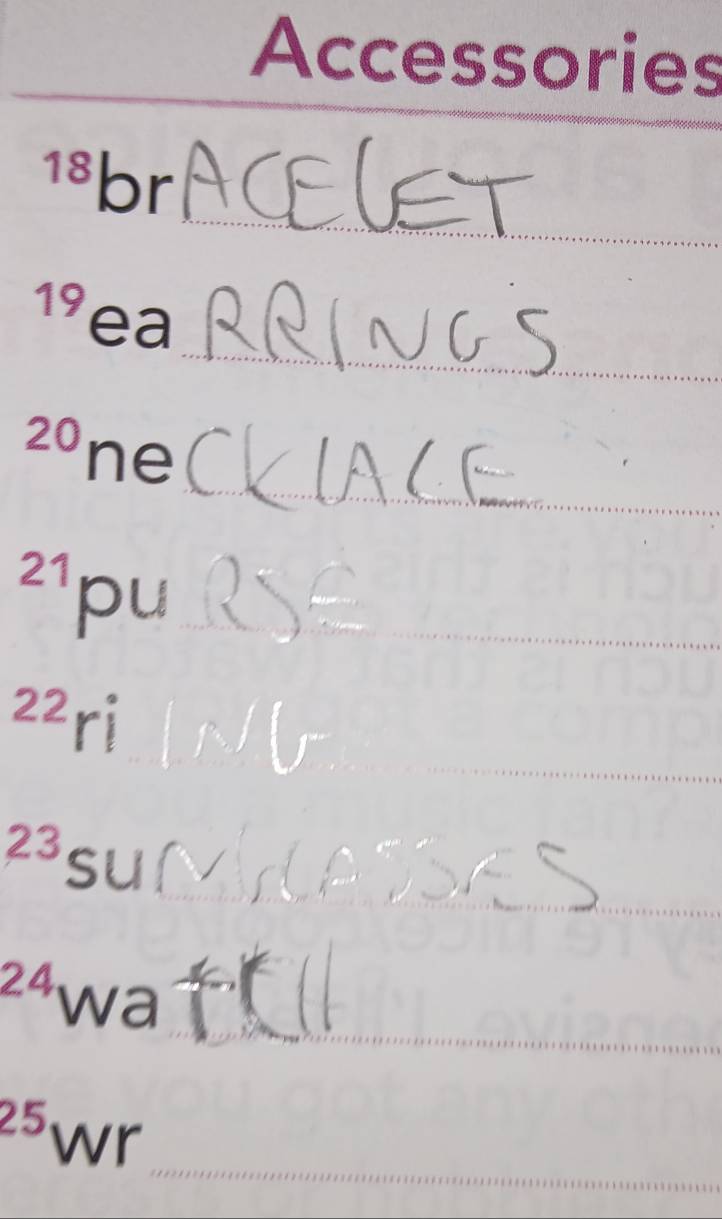 Accessories
18 brACELET
19 eaRRINGS
20 neCKLACE
21 puRSE
22 riING
23 suNGLASSES
24 waTCH
25 wr